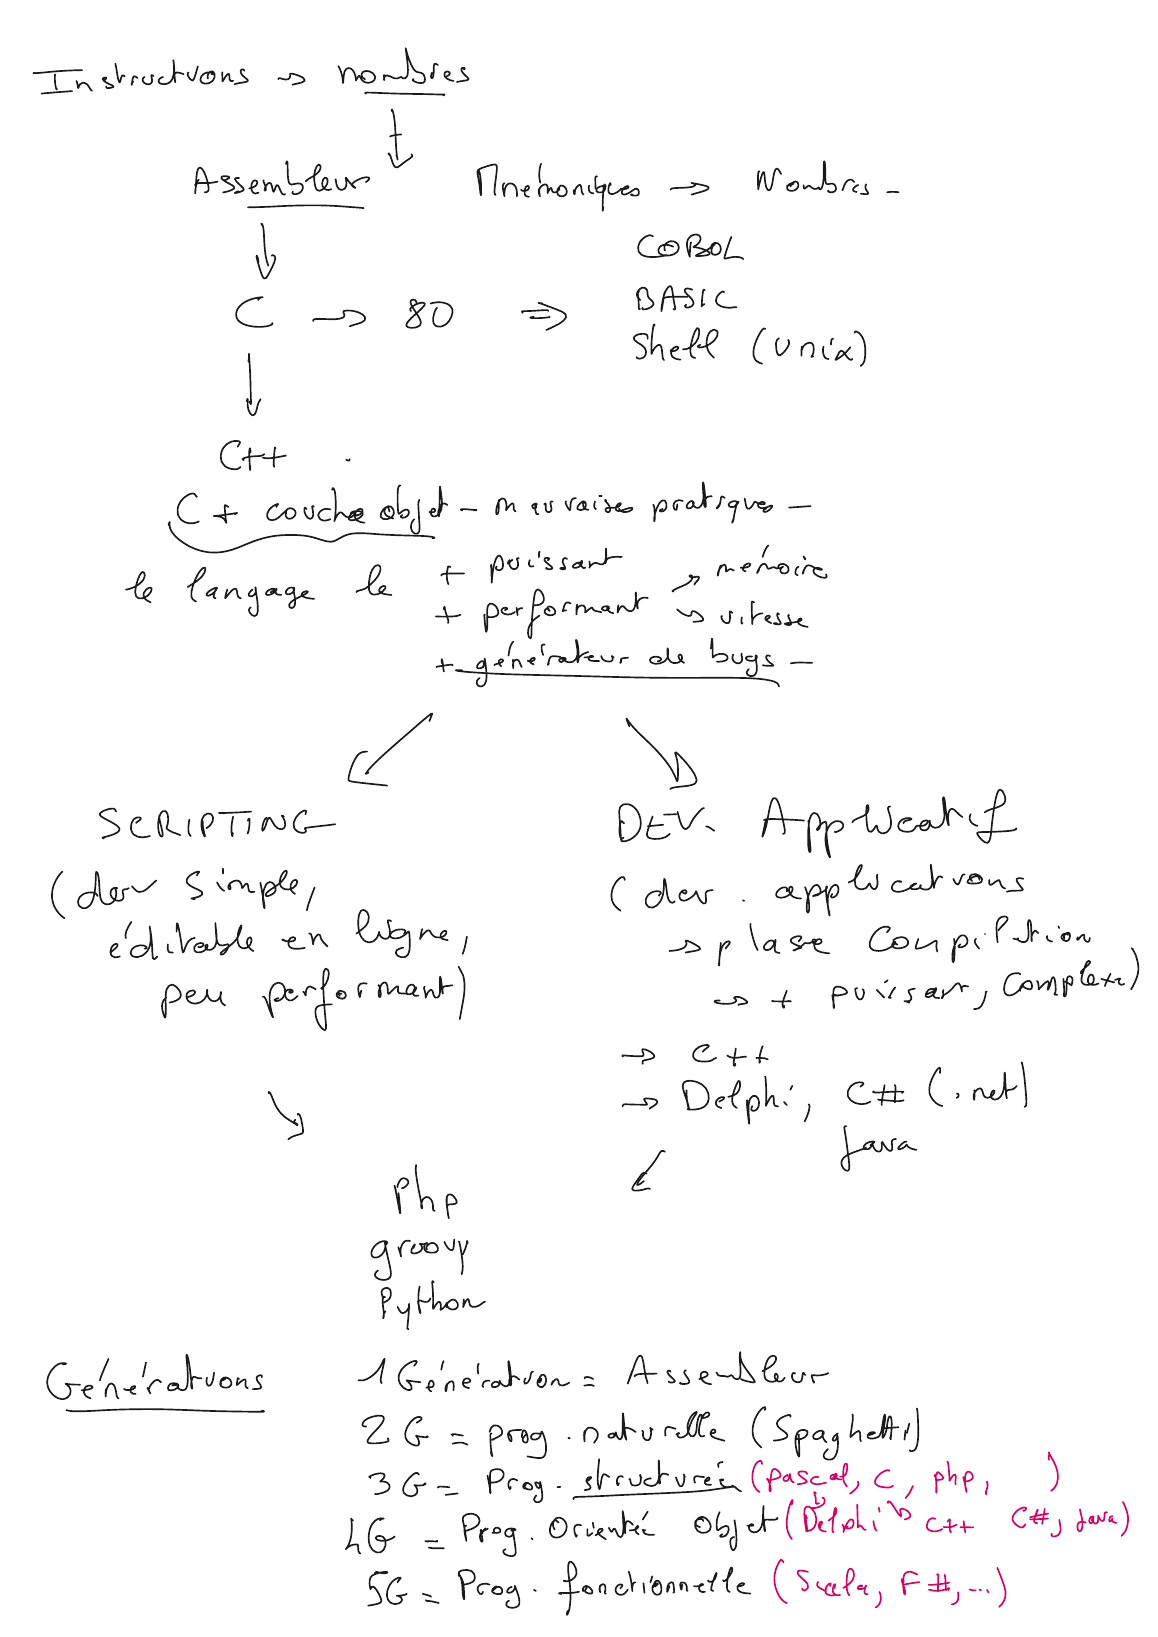 Instructions → nombres
Assembleur Mnémoniques → Nombres -
COBOL
C → 80 ⇒ BASIC
Shell (Unix)
C++
C + couche objet - mauvaises pratiques -
le langage le + puissant → mémoire
+ performant → vitesse
+ générateur de bugs -
SCRIPTING
(dev simple,
éditable en ligne,
peu performant)
DEV. Applicatif
(dev. applications
→ phase compilation
→ + puissant, complexe)
→ C++
→ Delphi, C# (.net)
Java
Php
groovy
Python
Générations 1 Génération = Assembleur
2G = prog. naturelle (Spaghetti)
3G = Prog. structurée (pascal, C, php, )
4G = Prog. Orienté Objet (Delphi C++ C#, Java)
5G = Prog. fonctionnelle (Scala, F#, ...)